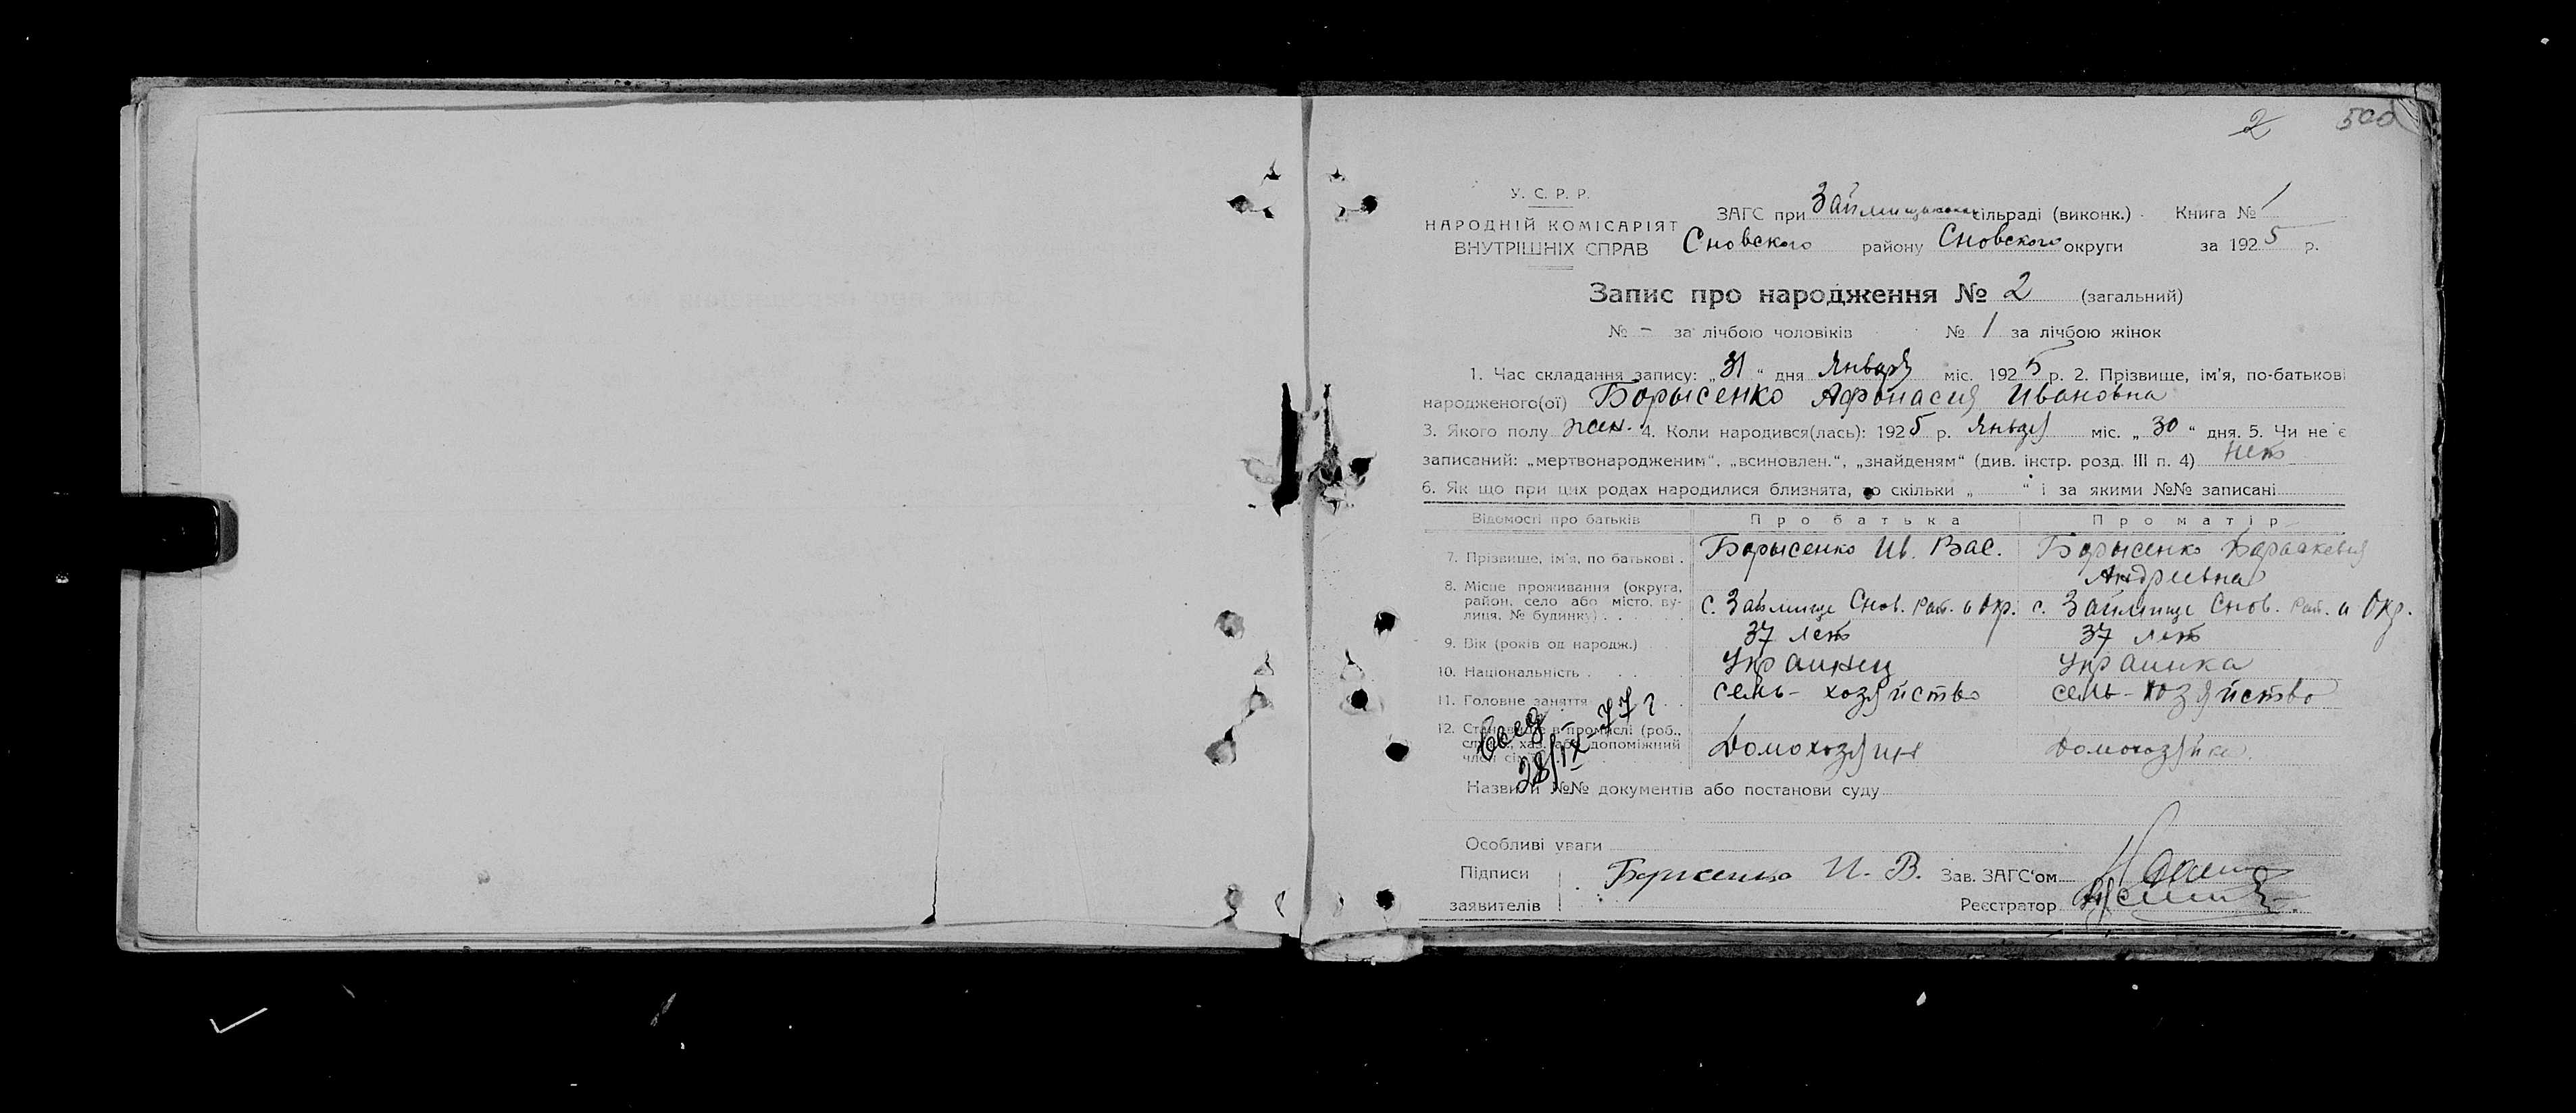 2
У. С. Р. Р.
НАРОДНІЙ КОМІСАРІЯТ
ВНУТРІШНІХ СПРАВ
ЗАГС при Займищанской сільраді (виконк.) Книга № 1
Сновского району Сновского округи за 1925 р.
Запис про народження № 2 (загальний)
№ - за лічбою чоловіків № 1 за лічбою жінок
1. Час складання запису: „31“ дня Января міс. 1925 р. 2. Прізвище, ім'я, по-батькові
народженого(ої) Борысенко Афонасия Ивановна
3. Якого полу жен. 4. Коли народився(лась): 1925 р. Января міс. „30“ дня. 5. Чи не є
записаний: „мертвонародженим“, „всиновлен.“, „знайденям“ (див. інстр. розд. III п. 4) Нет
6. Як що при цих родах народилися близнята, то скільки „ “ і за якими №№ записані
Відомості про батьків Про батька Про матір
7. Прізвище, ім'я, по батькові . Борысенко Ив. Вас. Борысенко
Андреевна
8. Місце проживання (округа, район, село або місто, вулиця, № будинку) . . . с. Займище Снов. Рай. и Окр. с. Займище Снов. Рай. и Окр.
9. Вік (років од народж.) 37 лет 37 лет
10. Національність . . . Украинец Украинка
11. Головне заняття . . Сель-хозяйство Сель-хозяйство
12. Становище в промислі (роб., допоміжний Домохозяин Домохозяйка
28/IX-77 г
Назви й №№ документів або постанови суду
Особливі уваги
Підписи Борисенко И. В. Зав. ЗАГС'ом
заявителів Реєстратор